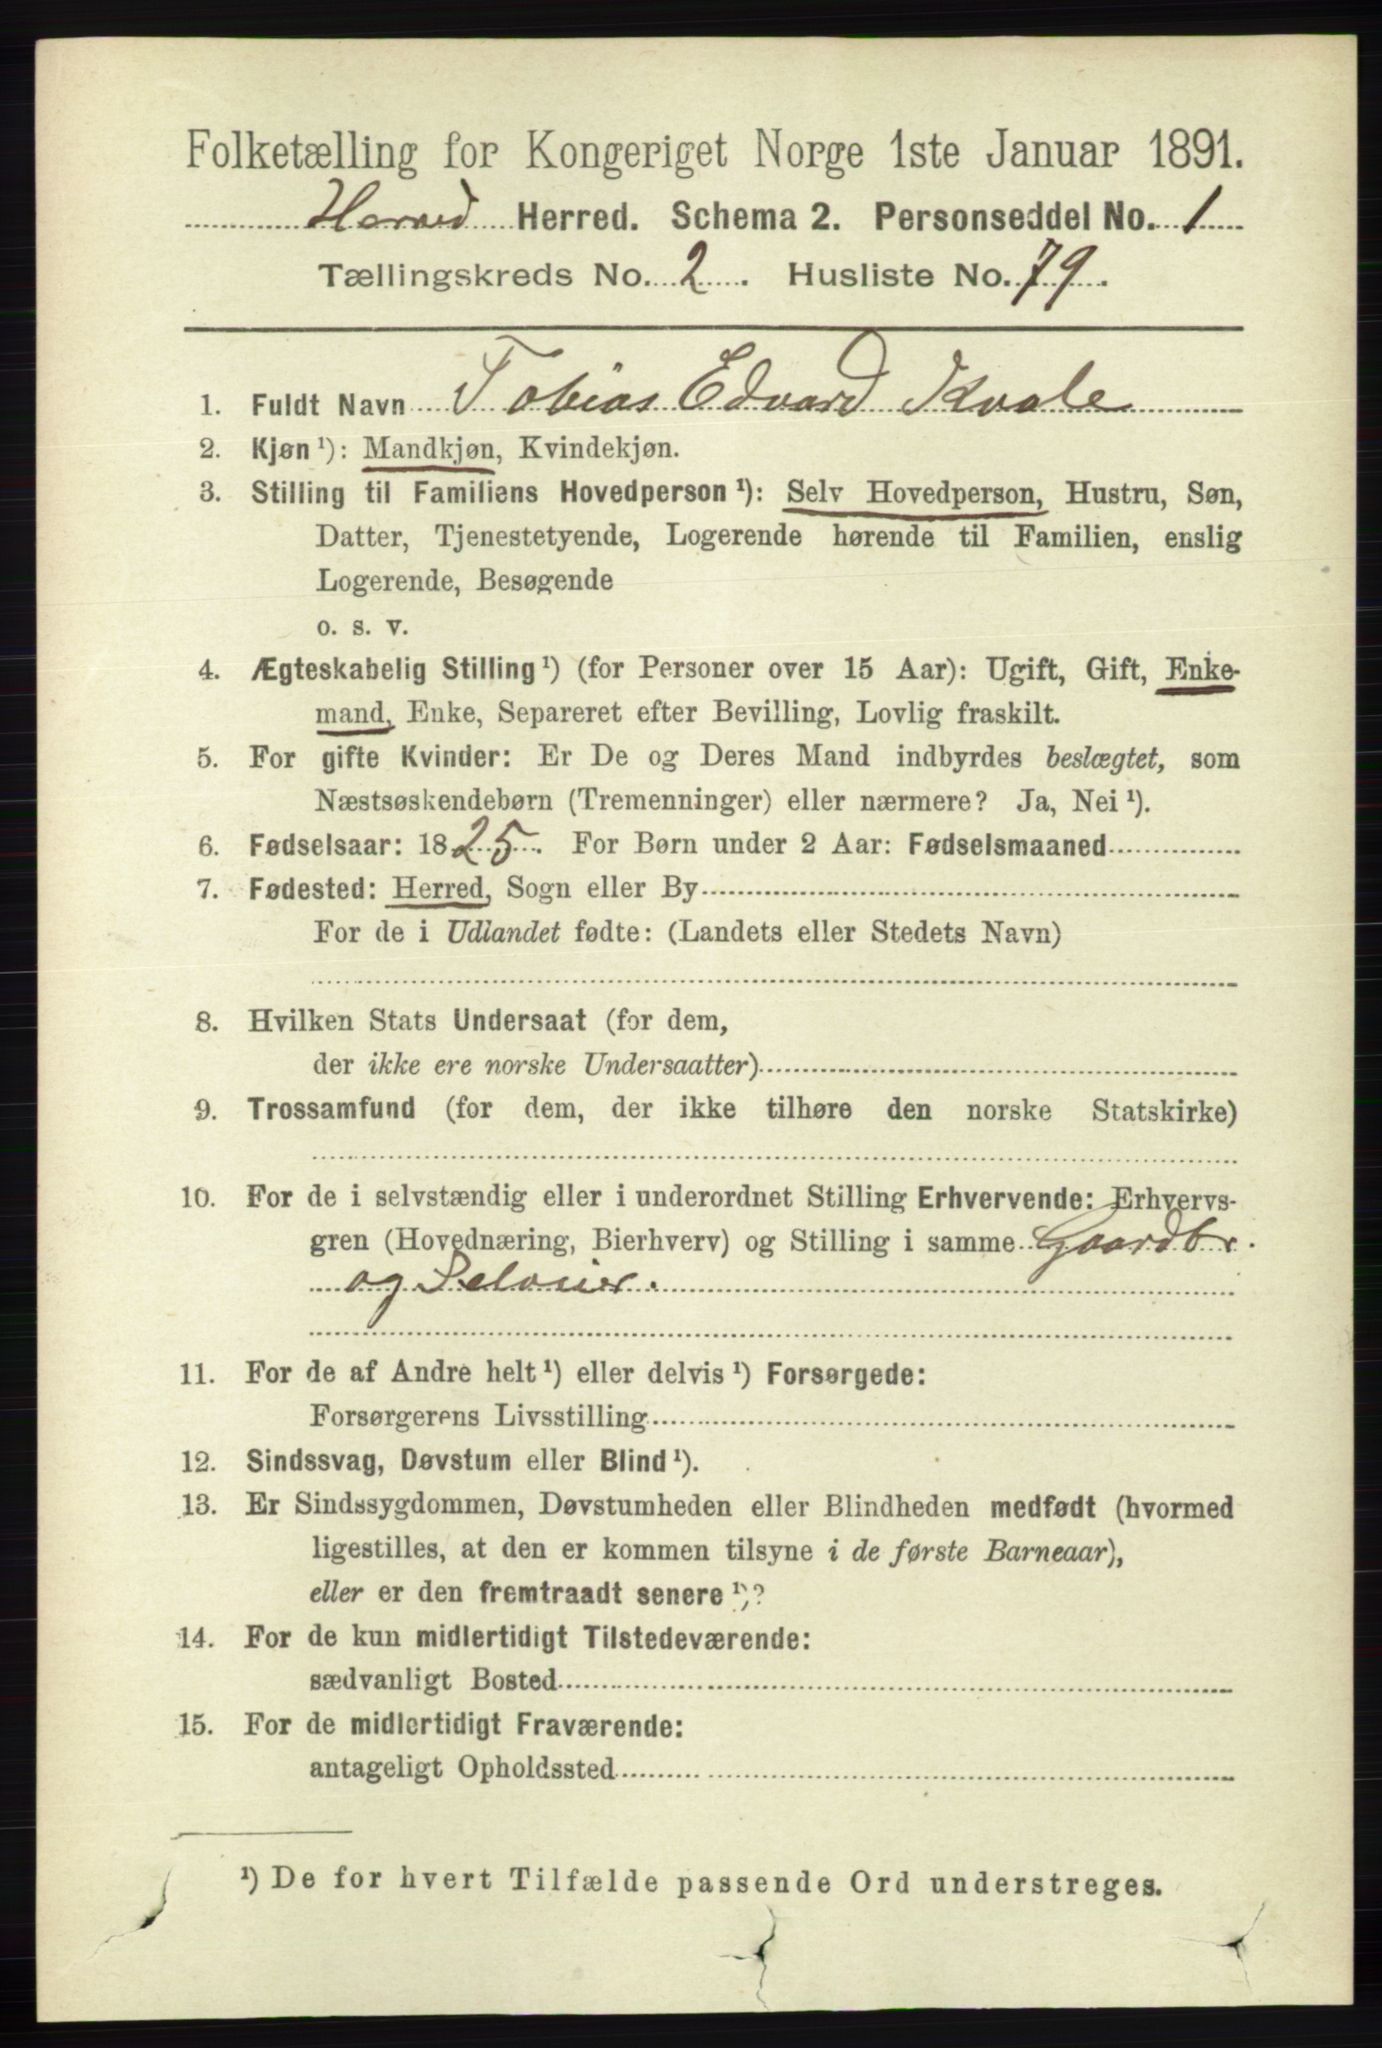 Folketælling for Kongeriget Norge 1ste Januar 1891.
Herred Herred. Schema 2. Personseddel No. 1
Tællingskreds No. 2. Husliste No. 79.
1. Fuldt Navn Tobias Edvard Kvale
2. Kjøn ¹): Mandkjøn, Kvindekjøn.
3. Stilling til Familiens Hovedperson ¹): Selv Hovedperson, Hustru, Søn,
Datter, Tjenestetyende, Logerende hørende til Familien, enslig
Logerende, Besøgende
o. s. v.
4. Ægteskabelig Stilling ¹) (for Personer over 15 Aar): Ugift, Gift, Enke-
mand, Enke, Separeret efter Bevilling, Lovlig fraskilt.
5. For gifte Kvinder: Er De og Deres Mand indbyrdes beslægtet, som
Næstsøskendebørn (Tremenninger) eller nærmere? Ja, Nei ¹).
6. Fødselsaar: 1825. For Børn under 2 Aar: Fødselsmaaned
7. Fødested: Herred, Sogn eller By
For de i Udlandet fødte: (Landets eller Stedets Navn)
8. Hvilken Stats Undersaat (for dem,
der ikke ere norske Undersaatter)
9. Trossamfund (for dem, der ikke tilhøre den norske Statskirke)
10. For de i selvstændig eller i underordnet Stilling Erhvervende: Erhvervs-
gren (Hovednæring, Bierhverv) og Stilling i samme Gaardbr.
og Seloier.
11. For de af Andre helt ¹) eller delvis ¹) Forsørgede:
Forsørgerens Livsstilling
12. Sindssvag, Døvstum eller Blind ¹).
13. Er Sindssygdommen, Døvstumheden eller Blindheden medfødt (hvormed
ligestilles, at den er kommen tilsyne i de første Barneaar),
eller er den fremtraadt senere ¹)?
14. For de kun midlertidigt Tilstedeværende:
sædvanligt Bosted
15. For de midlertidigt Fraværende:
antageligt Opholdssted
¹) De for hvert Tilfælde passende Ord understreges.